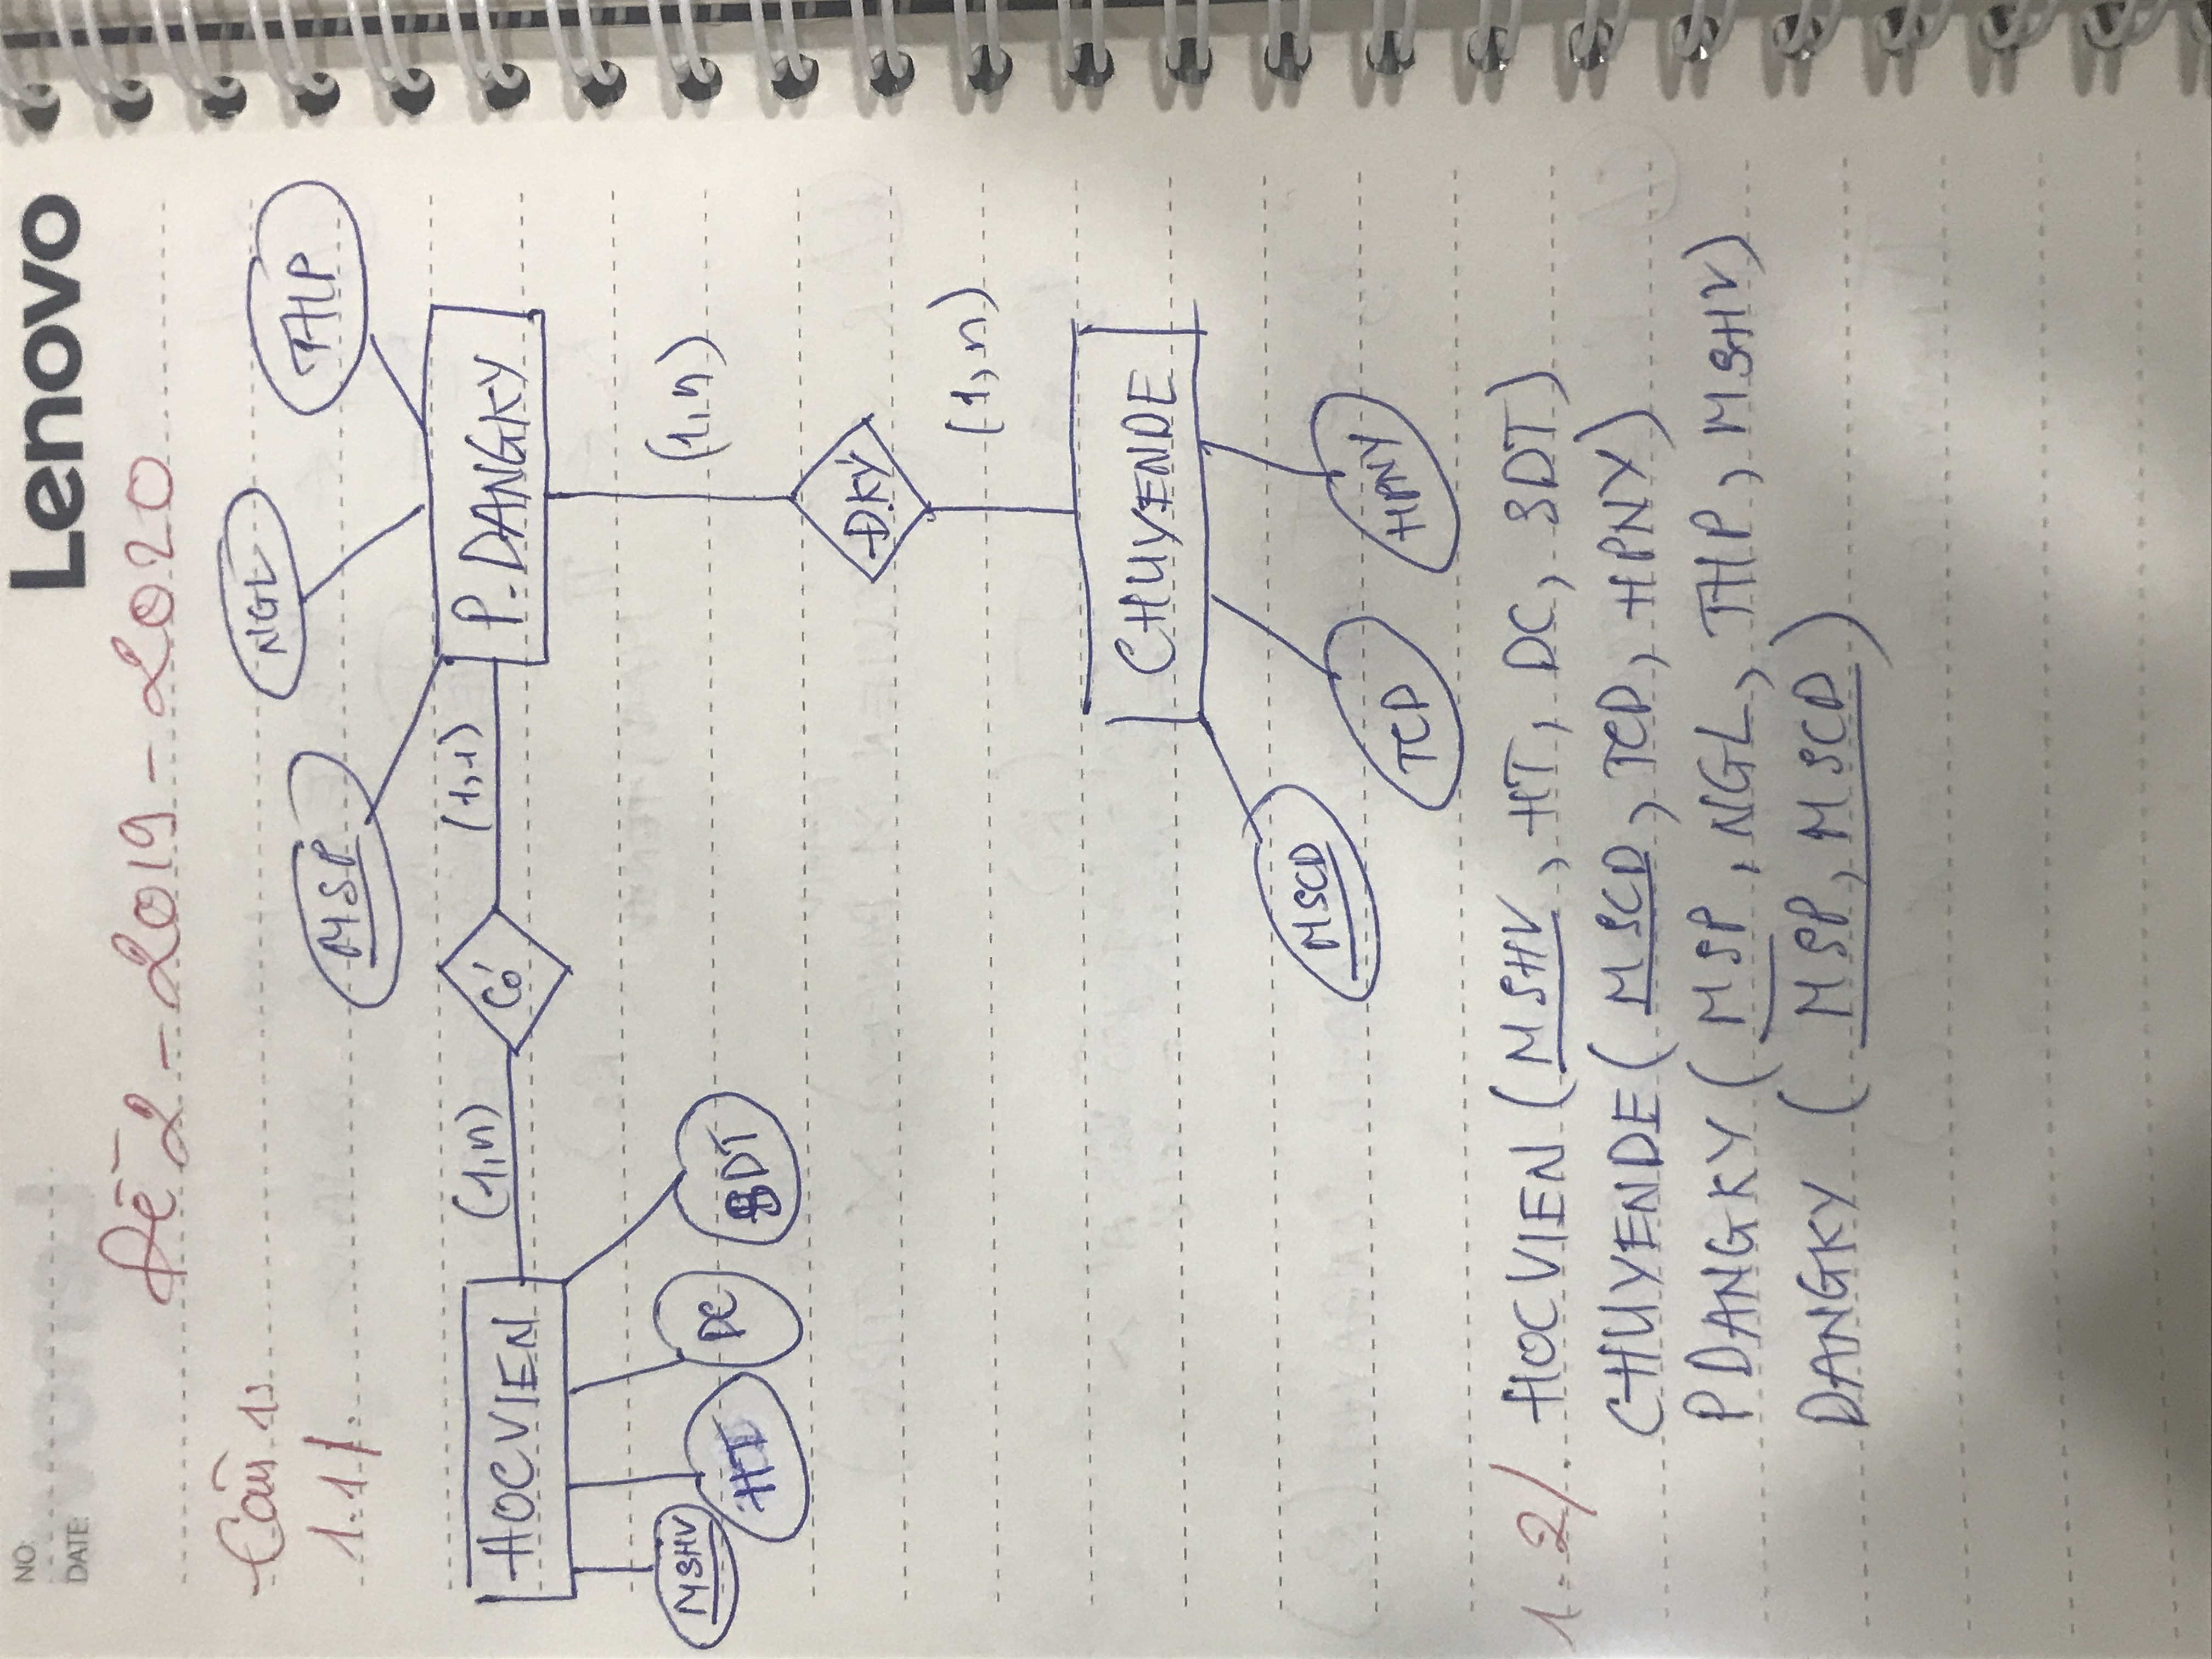 NO:
DATE:
Lenovo
Đề 2 - 2019 - 2020
Câu 1:
1.1/.
NGL
MSP
THP
HOCVIEN
(1,n)
Có
(1,1)
P.DANGKY
MSHV
HT
DC
SDT
(1,n)
Đ.KÝ
(1,n)
CHUYENDE
MSCD
TCD
HPNY
1.2/. HOCVIEN (MSHV, HT, DC, SDT)
CHUYENDE (MSCD, TCD, HPNY)
PDANGKY (MSP, NGL, THP, MSHV)
DANGKY (MSP, MSCD)